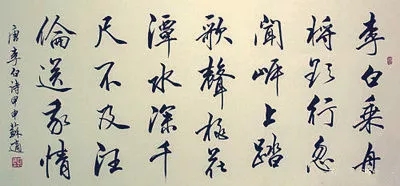 李白乘舟
将欲行忽
聞岸上踏
歌聲桃花
潭水深千
尺不及汪
倫送我情
唐李白诗甲申蘇適